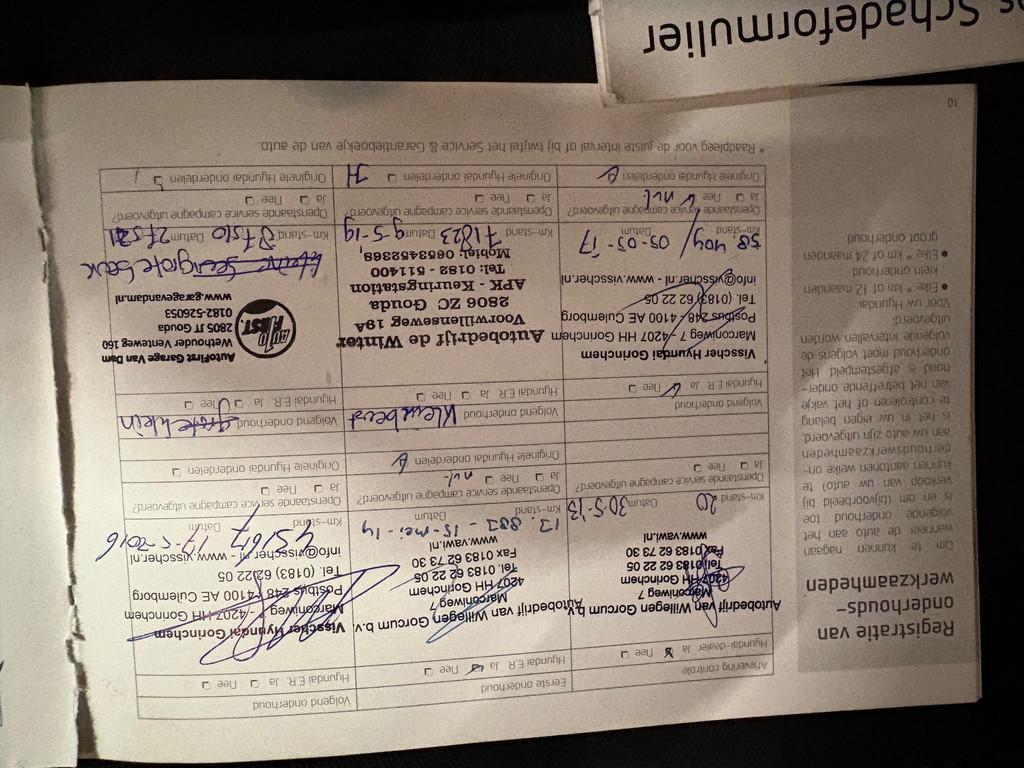 Registratie van
onderhouds-
werkzaamheden
Om te kunnen nagaan
wanneer de auto aan het
volgende onderhoud toe
is en om (bijvoorbeeld bij
verkoop van uw auto) te
kunnen aantonen welke on-
derhoudswerkzaamheden
aan uw auto zijn uitgevoerd,
is het in uw eigen belang
te controleren of het vakje
van het betreffende onder-
houd is afgestempeld. Het
onderhoud moet volgens de
volgende intervallen worden
uitgevoerd:
Voor uw Hyundai:
● Elke * km of 12 maanden
klein onderhoud
● Elke * km of 24 maanden
groot onderhoud
Aflevering controle
Hyundai-dealer Ja Nee
Autobedrijf van Willegen Gorcum b.v.
Marconiweg 7
4207 HH Gorinchem
Tel. 0183 62 22 05
Fax 0183 62 73 30
www.vawi.nl
20 30-5-13
Km-stand Datum
Openstaande service campagne uitgevoerd?
Ja Nee
Eerste onderhoud
Hyundai E.R. Ja Nee
Autobedrijf van Willegen Gorcum b.v.
Marconiweg 7
4207 HH Gorinchem
Tel. 0183 62 22 05
Fax 0183 62 73 30
www.vawi.nl
17.882 - 15-mei-14
Km-stand Datum
Openstaande service campagne uitgevoerd?
Ja Nee nvt
Originele Hyundai onderdelen
Volgend onderhoud
Hyundai E.R. Ja Nee
Visscher Hyundai Gorinchem
Marconiweg 7 - 4207 HH Gorinchem
Postbus 248 - 4100 AE Culemborg
Tel. (0183) 62 22 05
info@visscher.nl - www.visscher.nl
45167 17-5-2016
Km-stand Datum
Openstaande service campagne uitgevoerd?
Ja Nee
Originele Hyundai onderdelen
Volgend onderhoud
Hyundai E.R. Ja Nee
Visscher Hyundai Gorinchem
Marconiweg 7 - 4207 HH Gorinchem
Postbus 248 - 4100 AE Culemborg
Tel. (0183) 62 22 05
info@visscher.nl - www.visscher.nl
58 404 05-05-'17
Km-stand Datum
Openstaande service campagne uitgevoerd?
Ja Nee nvt
Originele Hyundai onderdelen
Volgend onderhoud Kleinbeurt
Hyundai E.R. Ja Nee
Autobedrijf de Winter
Voorwillenseweg 19A
2806 ZC Gouda
APK - Keuringstation
Tel: 0182 - 511400
Mobiel: 0653452369
Km-stand 71823 Datum 9-5-19
Openstaande service campagne uitgevoerd?
Ja Nee
Originele Hyundai onderdelen
Volgend onderhoud
Hyundai E.R. Ja Nee
AutoFirst Garage Van Dam
Wethouder Venteweg 160
2805 JT Gouda
0182-526053
www.garagevandam.nl
AUTO FIRST
Km-stand Datum
Openstaande service campagne uitgevoerd?
Ja Nee
Originele Hyundai onderdelen
* Raadpleeg voor de juiste interval of bij twijfel het Service & Garantieboekje van de auto.
10
Schadeformulier